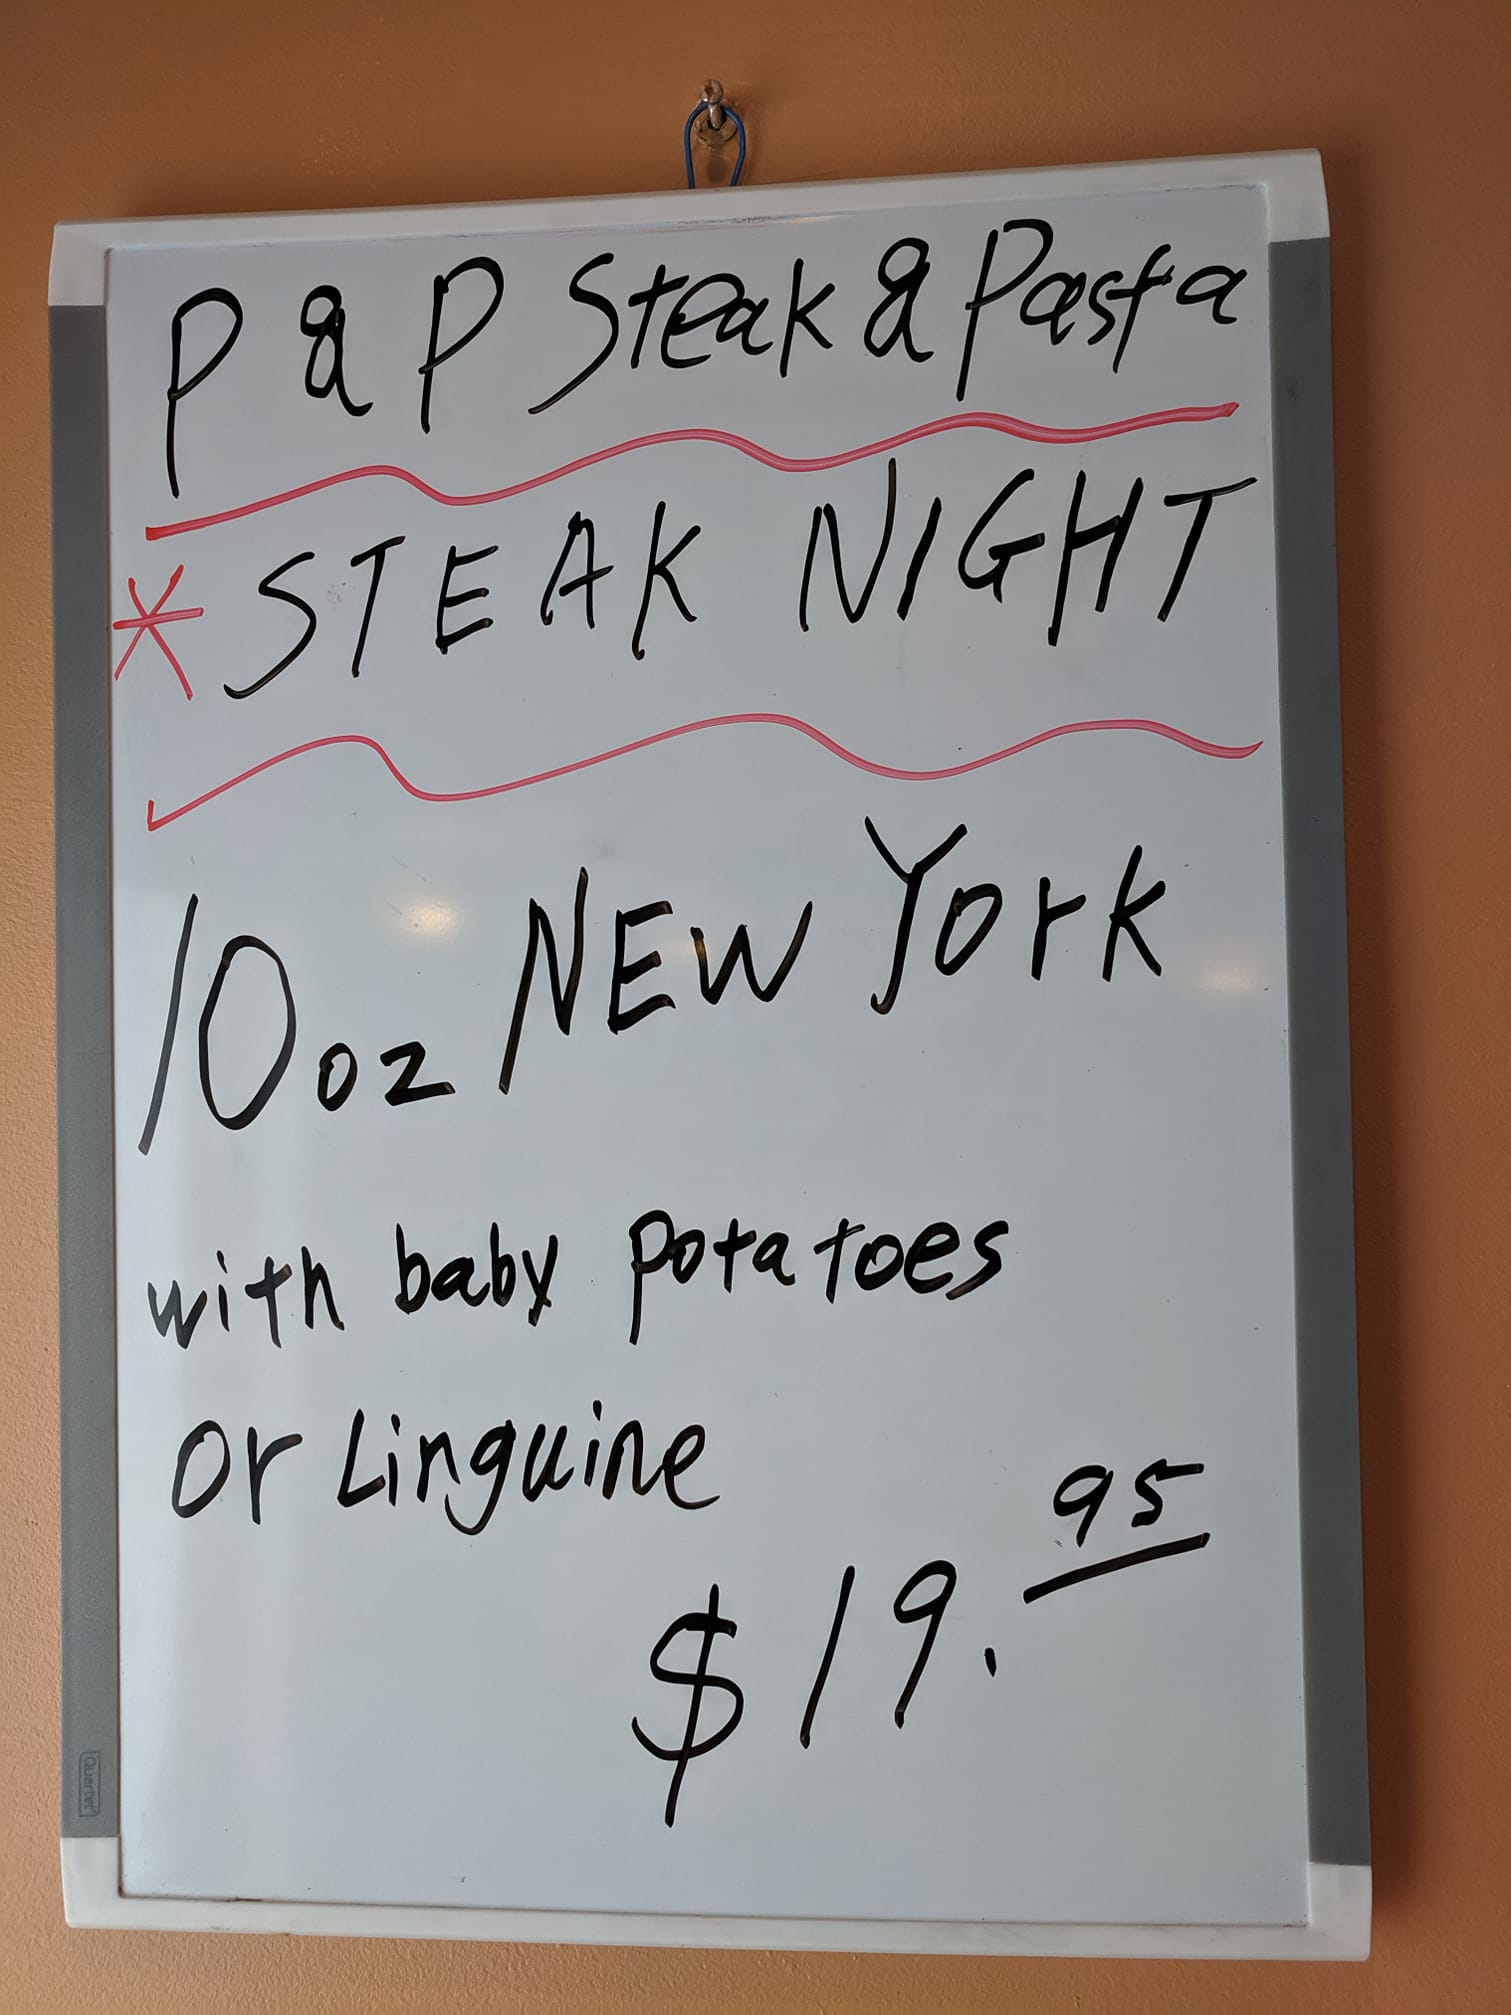 P & P Steak & Pasta
* STEAK NIGHT
10 oz NEW York
with baby potatoes
or Linguine
$19.95
Quartet